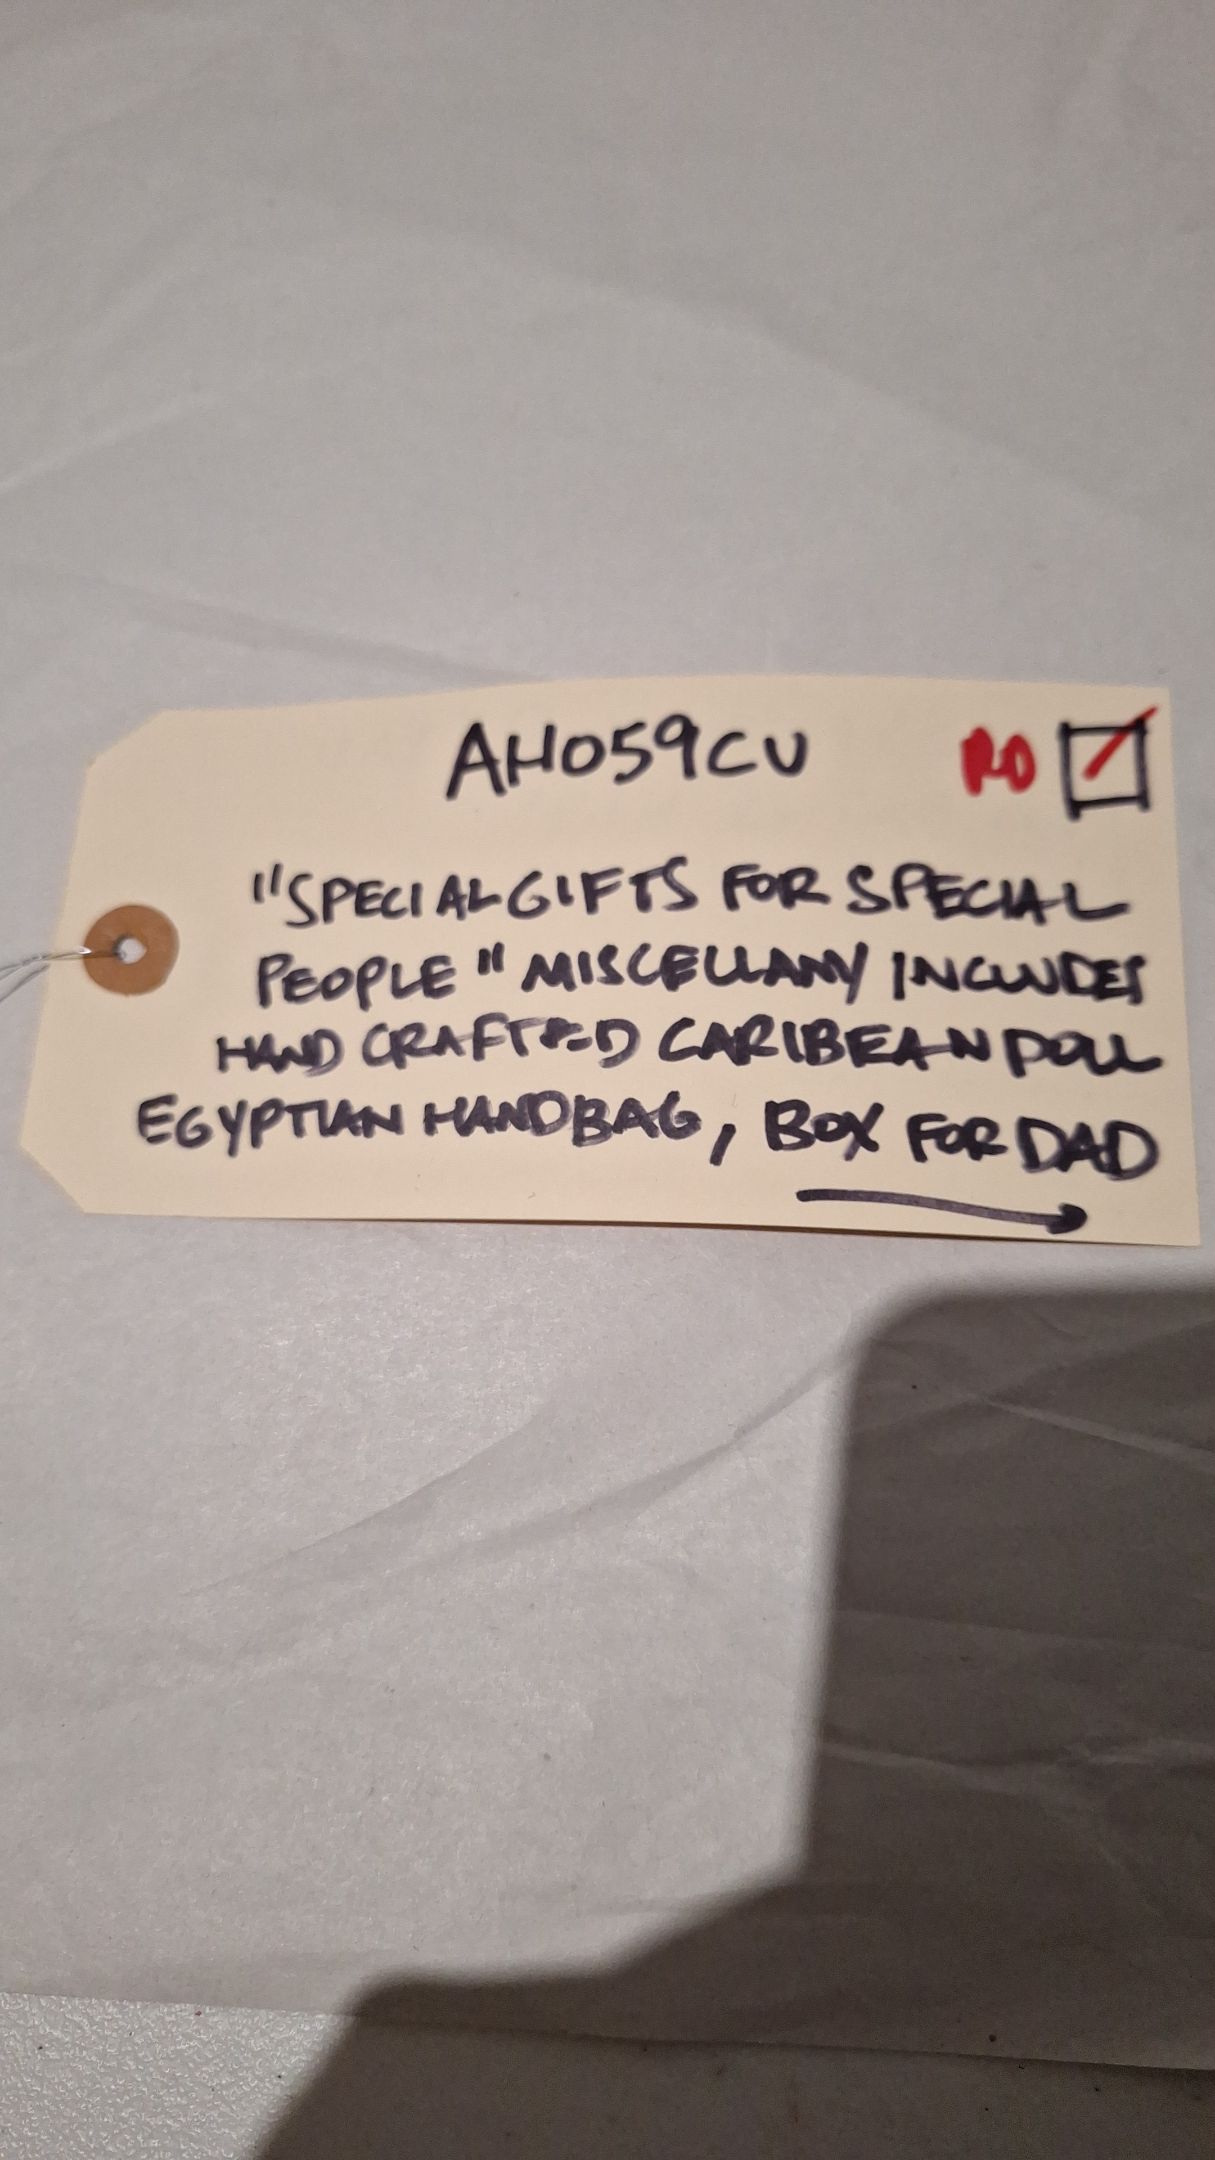 AH059CU RO
"SPECIAL GIFTS FOR SPECIAL
PEOPLE" MISCELLANY INCLUDES
HAND CRAFTED CARIBEAN DOLL
EGYPTIAN HANDBAG, BOX FOR DAD